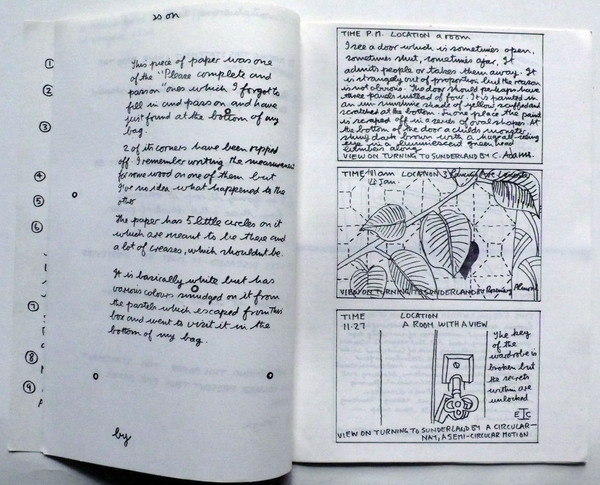 so on
①
②
③
④
⑤
⑥
⑦
⑧
⑨
This piece of paper was one
of the "Please complete and
pass on" ones which I forgot to
fill in and pass on and have
just found at the bottom of my
bag.
2 of its corners have been ripped
off. I remember writing the measurements
for some wood on one of them but
I've no idea what happened to the
other
The paper has 5 little circles on it
which are meant to be there and
a lot of creases, which shouldn't be.
It is basically white but has
various colours smudged on it from
the pastels which escaped from this
box and went to visit it in the
bottom of my bag.
by
TIME P.M. LOCATION a room
I see a door which is sometimes open,
sometimes shut, sometimes ajar, It
admits people or takes them away. It
is strangely out of proportion but the reason
is not obvious. The door should perhaps have
three panels instead of four. It is painted in
an un-sunshine shade of yellow, scuffed and
scratched at the bottom. In one place the paint
is scraped off in a series of oval shapes. At
the bottom of the door a child's
shiny dark brown with a
eye in a luminescent green head
along
VIEW ON TURNING TO SUNDERLAND BY C. Adams.
TIME 11am LOCATION 3
Jan.
VIEW ON TURNING TO SUNDERLAND by Rosemary
TIME LOCATION
11.27 A ROOM WITH A VIEW
The key
of the
wardrobe is
broken but
the secrets
within are
unlocked
VIEW ON TURNING TO SUNDERLAND BY A CIRCULAR-
NAY, A SEMI-CIRCULAR MOTION